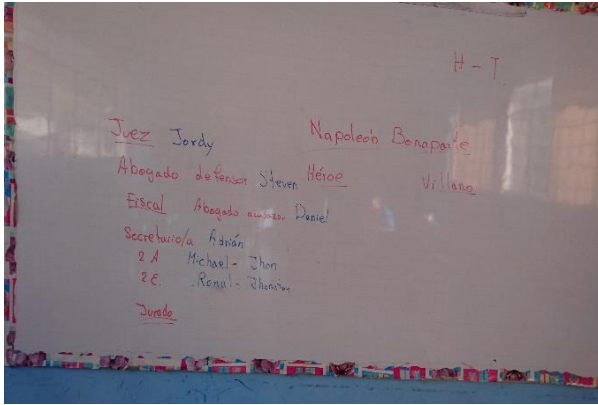 H - T
Juez Jordy
Napoleón Bonaparte
Abogado defensor Steven
Héroe
Villano
Fiscal Abogado Daniel
Secretario/a Adrián
2 A Michael - Jhon
2 E. - Jhonatan
Jurado